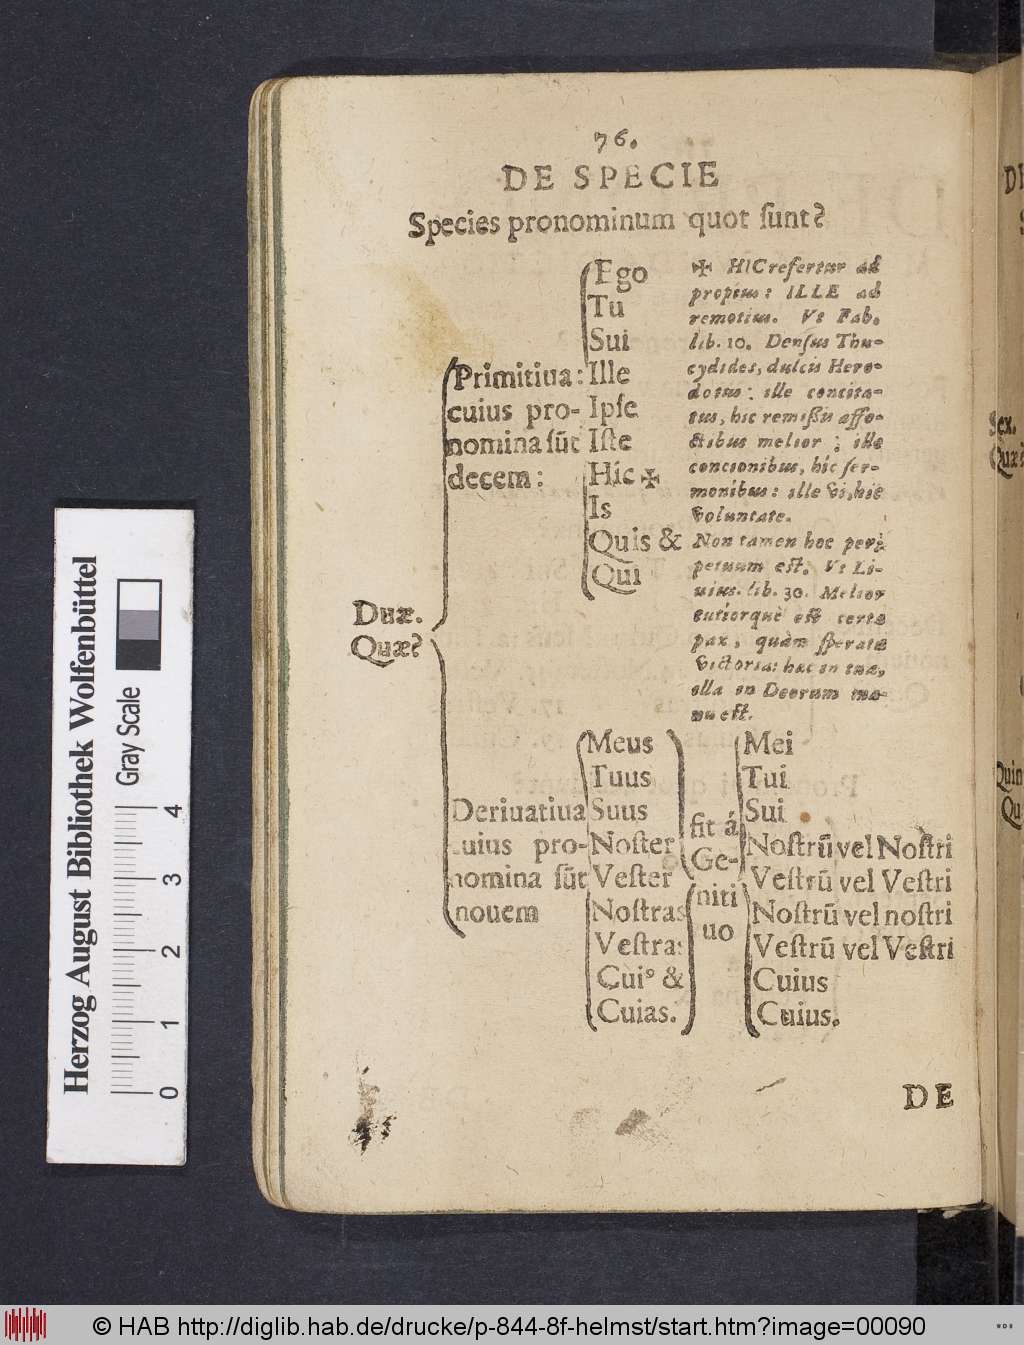 76.
DE SPECIE
Species pronominum quot ſunt?
Duæ.
Quæ?
Primitiua:
cuius pro-
nomina ſūt
decem:
Ego
Tu
Sui
Ille
Ipſe
Iſte
Hic ✠
Is
Quis &
Qui
✠ HIC refertur ad
propius: ILLE ad
remotius. Vt Fab.
lib. 10. Denſus Thu-
cydides, dulcis Hero-
dotus: ille concita-
tus, hic remiſſis affe-
ctibus melior; ille
concionibus, hic ſer-
monibus: ille vi, hic
voluntate.
Non tamen hoc per-
petuum eſt. Vt Li-
uius. lib. 30. Melior
tutiorquè eſt certa
pax, quàm ſperata
victoria: hæc in tua,
illa in Deorum ma-
nu eſt.
Deriuatiua
cuius pro-
nomina ſūt
nouem
Meus
Tuus
Suus
Noſter
Veſter
Noſtras
Veſtras
Cui⁹ &
Cuias.
fit á
Ge-
niti
uo
Mei
Tui
Sui
Noſtrū vel Noſtri
Veſtrū vel Veſtri
Noſtrū vel noſtri
Veſtrū vel Veſtri
Cuius
Cuius.
DE
Herzog August Bibliothek Wolfenbüttel
Gray Scale
0 1 2 3 4
Sex.
Quin
Qu
© HAB http://diglib.hab.de/drucke/p-844-8f-helmst/start.htm?image=00090